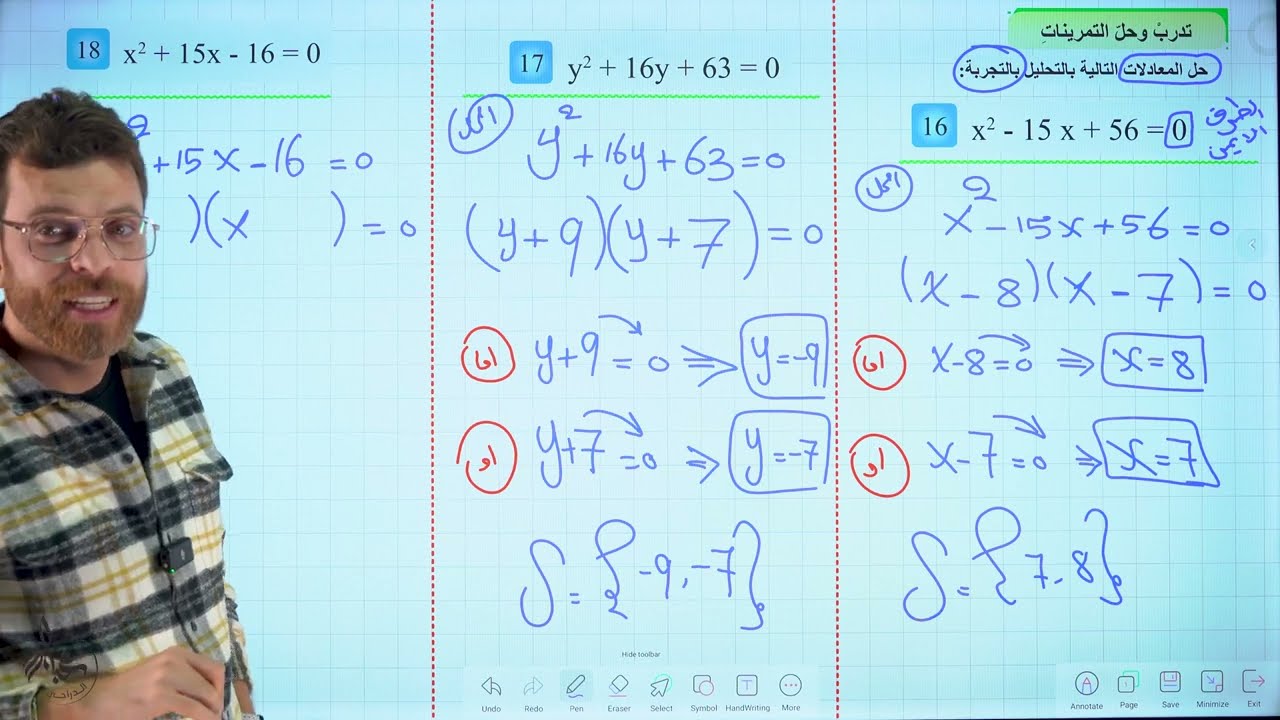 تدربْ وحلّ التمرينات
حل المعادلات التالية بالتحليل بالتجربة:
16 x² - 15 x + 56 = 0
الطرف
الايمن
الحل
x² - 15x + 56 = 0
(x - 8)(x - 7) = 0
اما x - 8 = 0 ⇒ x = 8
او x - 7 = 0 ⇒ x = 7
S = {7, 8}
17 y² + 16y + 63 = 0
الحل
y² + 16y + 63 = 0
(y + 9)(y + 7) = 0
اما y + 9 = 0 ⇒ y = -9
او y + 7 = 0 ⇒ y = -7
S = {-9, -7}
18 x² + 15x - 16 = 0
2 + 15x - 16 = 0
)(x ) = 0
Hide toolbar
Undo Redo Pen Eraser Select Symbol HandWriting More
Annotate Page Save Minimize Exit